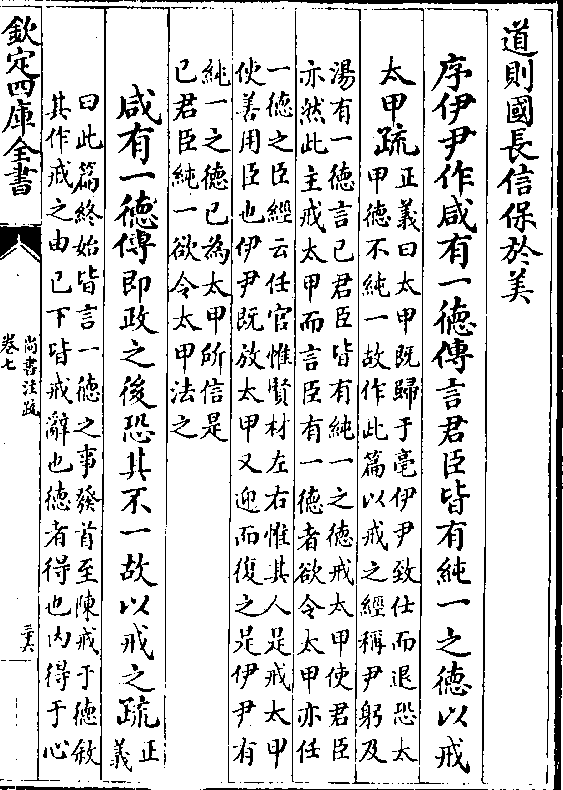 道則國長信保於美
序伊尹作咸有一德傳言君臣皆有純一之德以戒
太甲疏
正義曰太甲既歸于亳伊尹致仕而退恐太
甲德不純一故作此篇以戒之經稱尹躬及
湯有一德言已君臣皆有純一之德戒太甲使君臣
亦然此主戒太甲而言臣有一德者欲令太甲亦任
一德之臣經云任官惟賢材左右惟其人是戒太甲
使善用臣也伊尹既放太甲又迎而復之是伊尹有
純一之德已為太甲所信是
已君臣純一欲令太甲法之
咸有一德傳即政之後恐其不一故以戒之疏
正
義
曰此篇終始皆言一德之事發首至陳戒于德敘
其作戒之由已下皆戒辭也德者得也内得于心
欽定四庫全書
尚書注疏
卷七